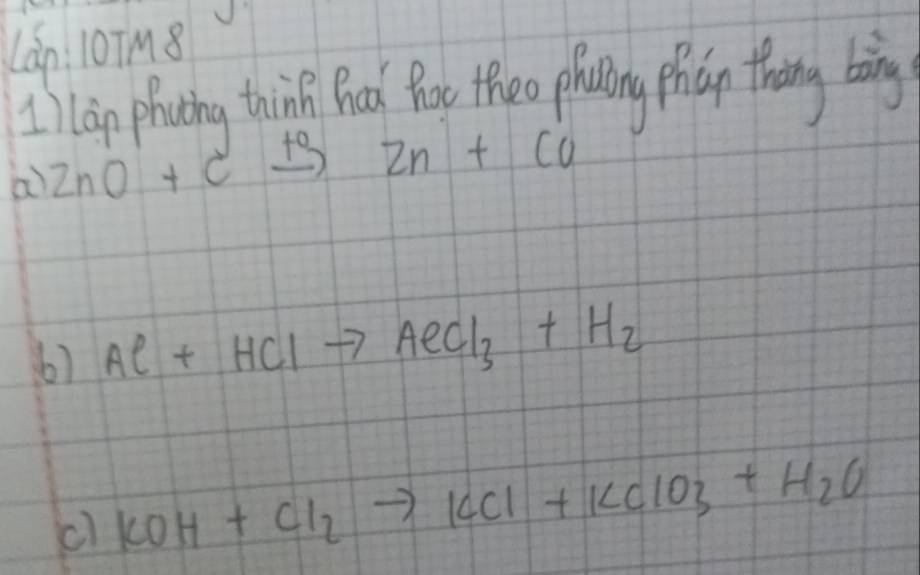 Lớp: 10TM8
1) Lập phương trình hoá học theo phương pháp thăng bằng
a) ZnO + C t° → Zn + CO
b) Al + HCl → AlCl₃ + H₂
c) KOH + Cl₂ → KCl + KClO₃ + H₂O